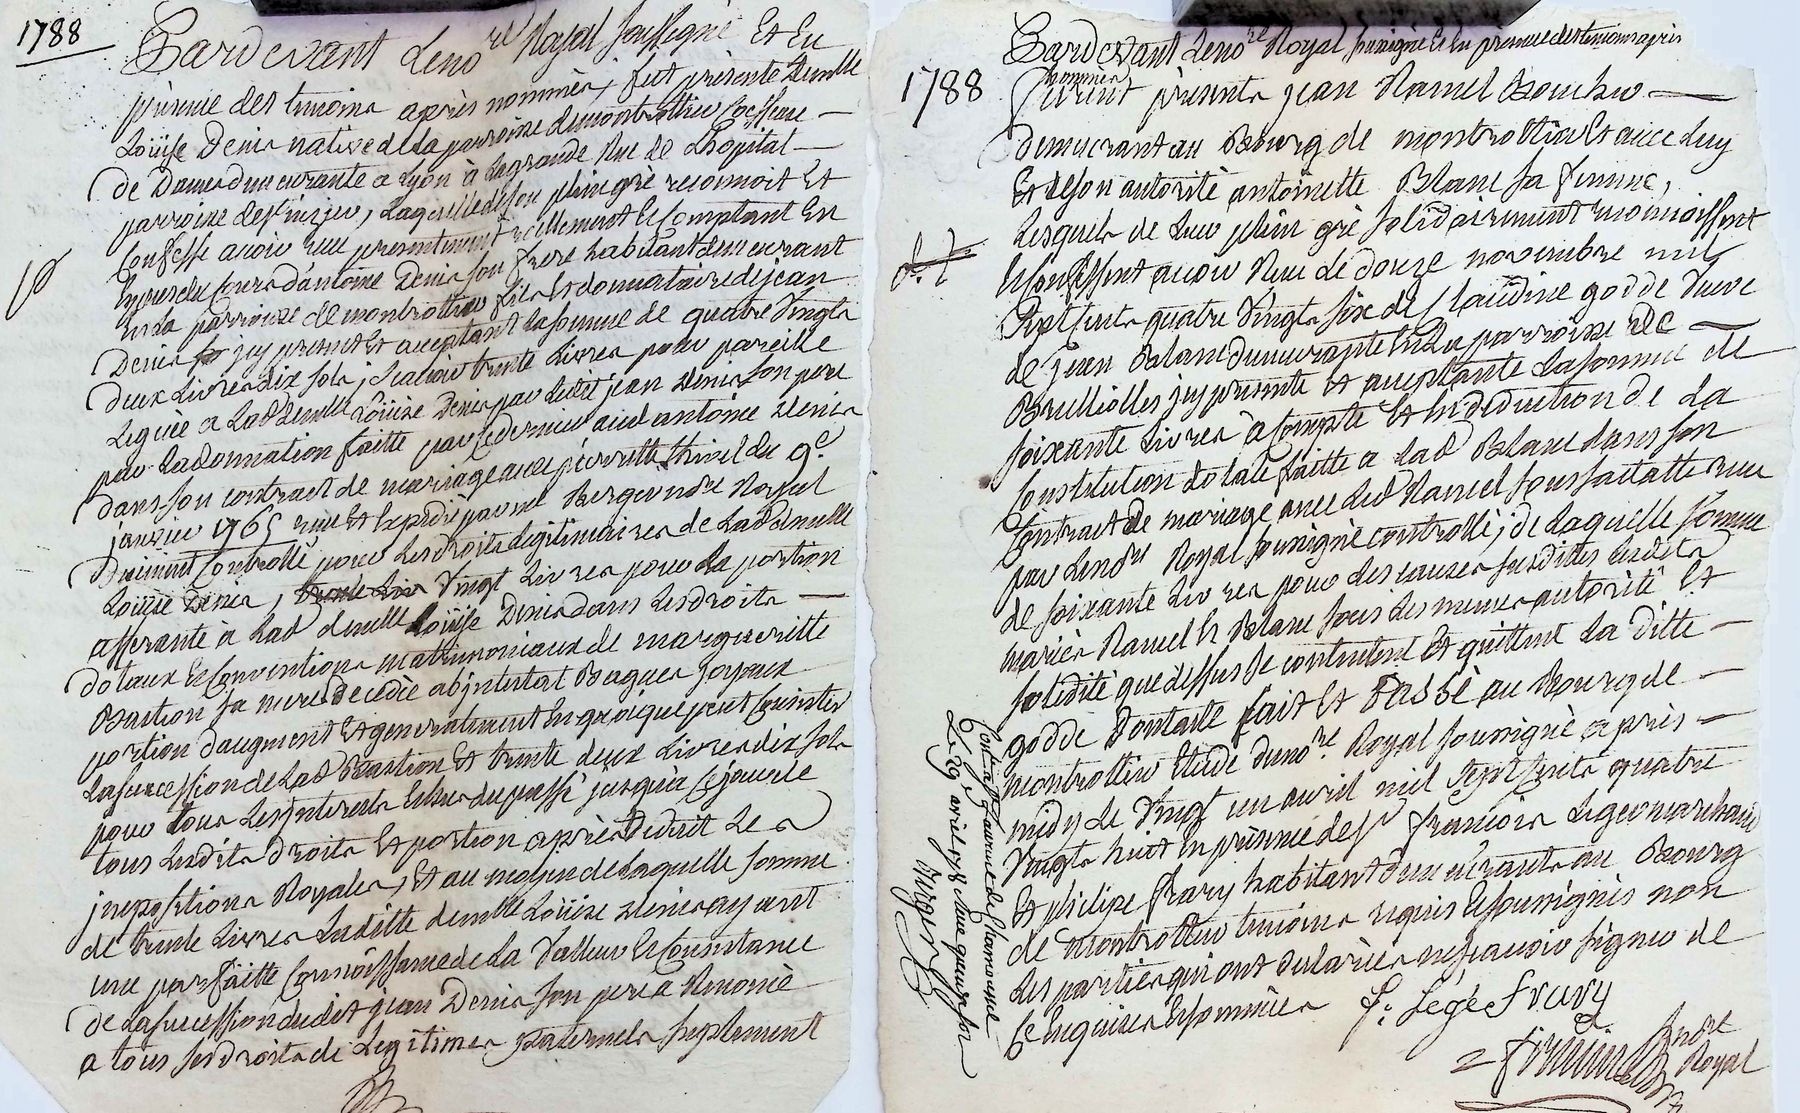 1788
Pardevant Leno.re Royal soussigné Et En
présence des temoins après nommés, fut presente demlle
Loüise Denis native de la parroisse de montrottier Coeffeuse
de Dames demeurante a Lyon à La grande Rue de Lhopital
parroisse de, Laquelle de son plein gré reconnoit Et
Confesse avoir reçu presentement réellement et Comptant En
Especes du Cours d'antoine Denis son frere habitant demeurant
En La parroisse de montrottier fils Et donnataire de jean
Denis jcy present Et acceptant La somme de quatre vingts
deux Livres dix sols, scavoir trente Livres pour pareille
Leguée a Lad demlle Loüise Denis par Ledit jean Denis son pere
par La donnation faitte par Ce dernier aud antoine Denis
dans son contract de mariage avec pierrette Thivel du 9e.
janvier 1765 reçu Et Expedié par me Bergeron nore Royal
duement Controllé pour Les droits Legitimaires de Lad demlle
Loüise Denis, vingt Livres pour La portion
afferante à Lad demlle Loüise Denis dans Les droits
dotaux Et Conventions matrimoniaux de margueritte
Bastion sa mere decedée abjntestat Bagues joyaux
portion d'augment Et generalement En quoi que peut Consister
La succession de Lad Bastion Et trente deux Livres dix sols
pour tous Les jnterets Echus du passé jusqu'a Ce jour de
tous Lesdits droits Et portion après deduit Les
jmpositions Royales, Et au moyen de Laquelle somme
de trente Livres Laditte demlle Loüise Denis ayant
une parfaitte Connoissance de La valleur Et Consistance
de La succession dudit jean Denis son pere a Renoncé
a tous ses droits de Legitimes paternels suplement
1788
Pardevant Leno.re Royal soussigné Et En presence des temoins après
nommés
furent présents jean Ramel
demeurant au Bourg de montrottier Et avec Luy
Et de son autorité antoinette Blanc sa femme,
Lesquels de Leur plein gré solidairement reconnoissent
Et Confessent avoir Reçu de douze novembre mil
sept cents quatre vingts six de Claudine godde veuve
de jean Blanc demeurante En La parroisse de
Brullioles jcy presente Et acceptante La somme de
soixante Livres à Compte Et En deduction de La
Constitution dotale faitte a Lad Blanc dans son
Contract de mariage avec Led Ramel sous sa datte reçu
par Leno.re Royal soussigné controllé, de Laquelle somme
de soixante Livres pour des causes susdittes Lesdits
mariés Ramel Et Blanc sous Les memes autorité Et
solidité que dessus se contentent Et quittent La ditte
godde Dont acte fait Et Passé au Bourg de
montrottier Etude duno.re Royal soussigné après
midy Le vingt un avril mil sept cents quatre
vingts huit En présence de sr françois Legeo marchand
Et philipe Frary habitant demeurants au Bourg
de montrottier temoins requis Et soussignés non
Les parties qui ont declarées ne sçavoir signer de
Ce Enquises Et sommées
f: Légé Frary
nore
Royal
Controllé a
Le 29 avril 1788 Reçu quinze sols